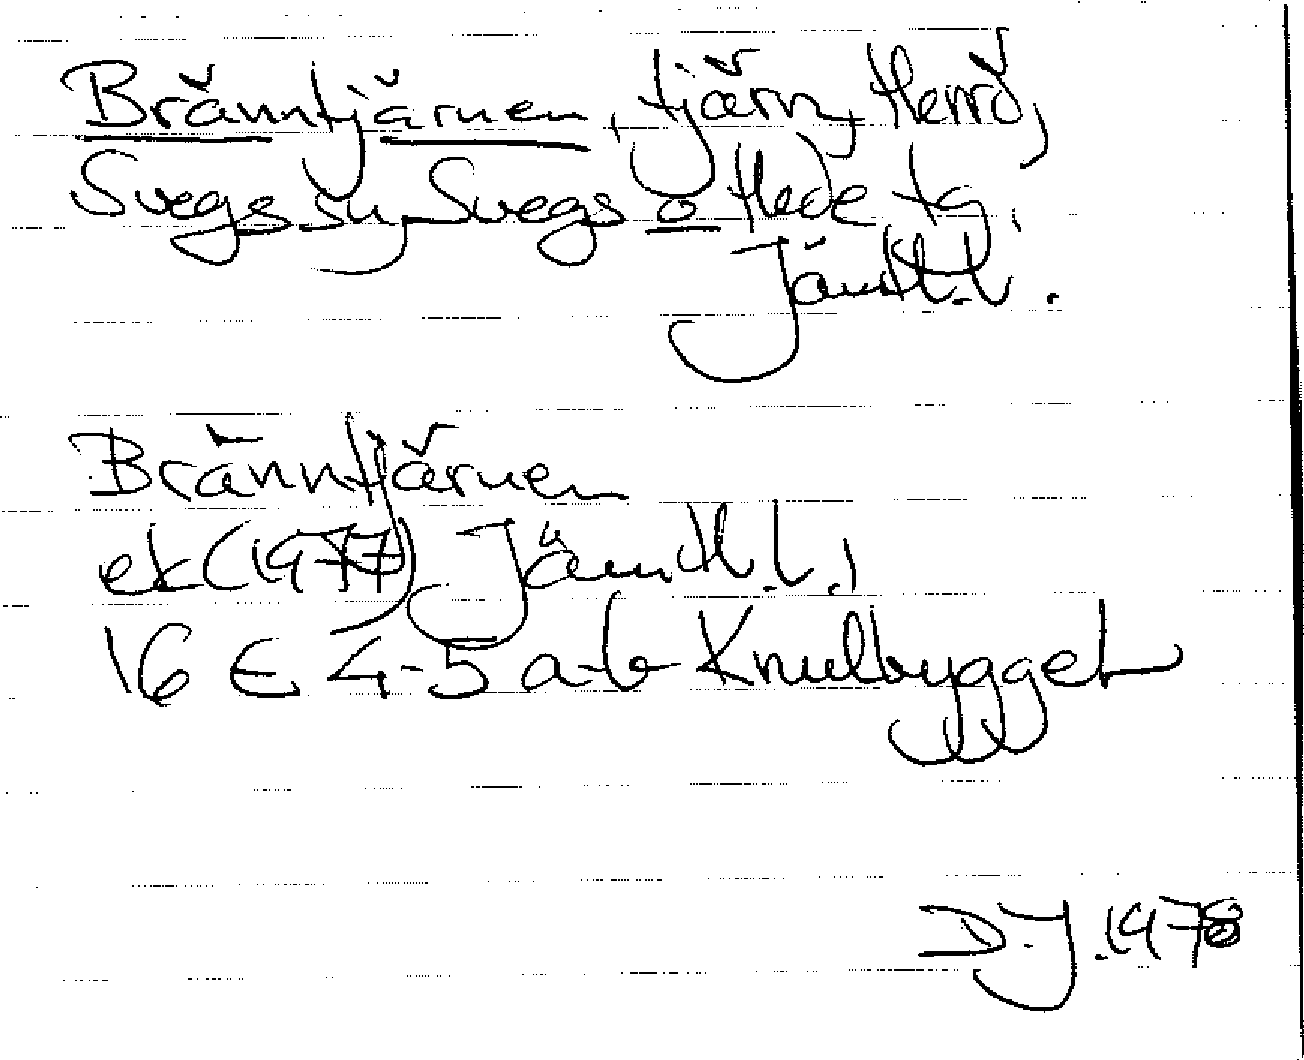 Bränntjärnen, tjärn, Herrö,
Svegs sn, Svegs o Hede tg,
Jämtl.l.
Bränntjärnen
ek (1977) Jämtl.l.,
16 E 4-5 a-b Knulbygget
D.J. 1978